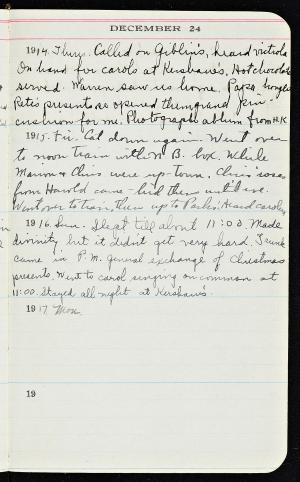 DECEMBER 24
1914. Thurs. Called on Giblin's, heard victrola
On hand for carols at Kershaw's. Hot chocolate
served. Warren saw us home. Papa brought
Pete's present so opened them and
cushion for me. Photograph album from H.K.
1915. Fri. Cal down again. Went over
to noon train with M B. box. While
Marion & Chris were up-town, Chris's roses
from Harold came - hid them until
Went over to train, then up to Park. Heard carolers
1916. Sun. Slept till about 11:00. Made
divinity but it didn't get very hard. Trunk
came in P.M. General exchange of Christmas
presents. Went to carol singing on common at
11:00. Stayed all night at Kershaw's.
1917. Mon.
19